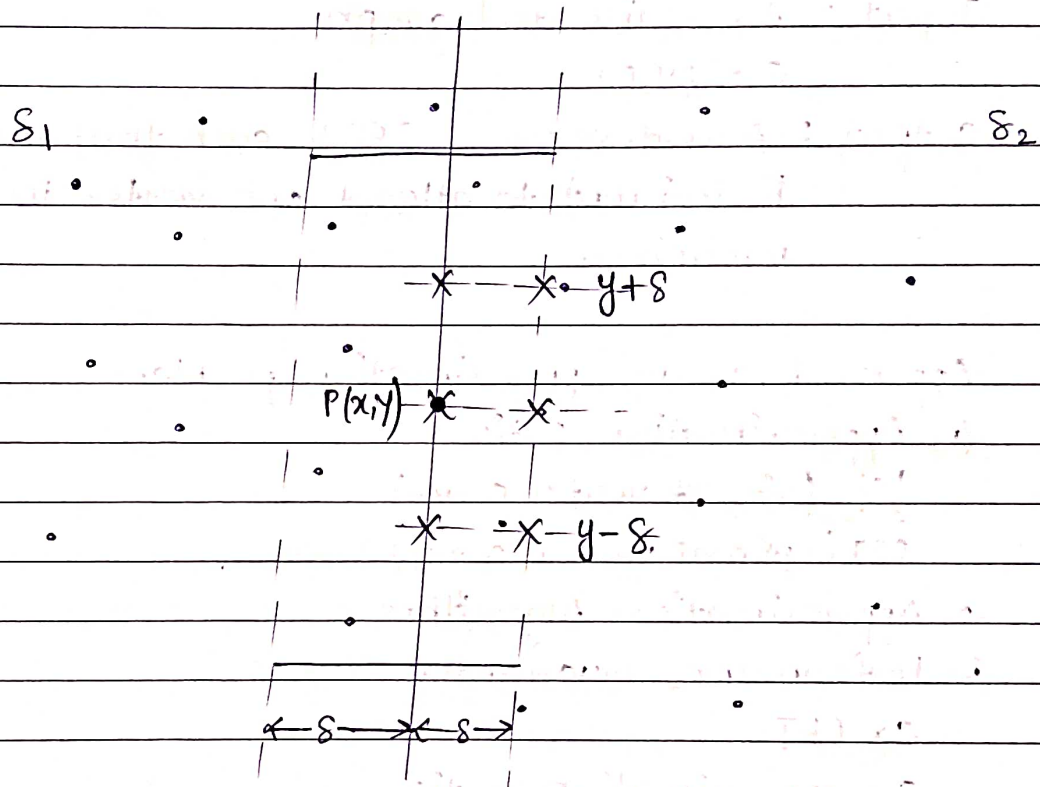 δ₁ δ₂
y+δ
P(x,y)
y-δ
δ δ